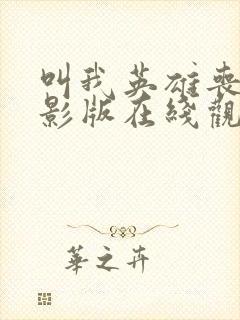 叫我英雄喪
影版在綫觀
華之卉